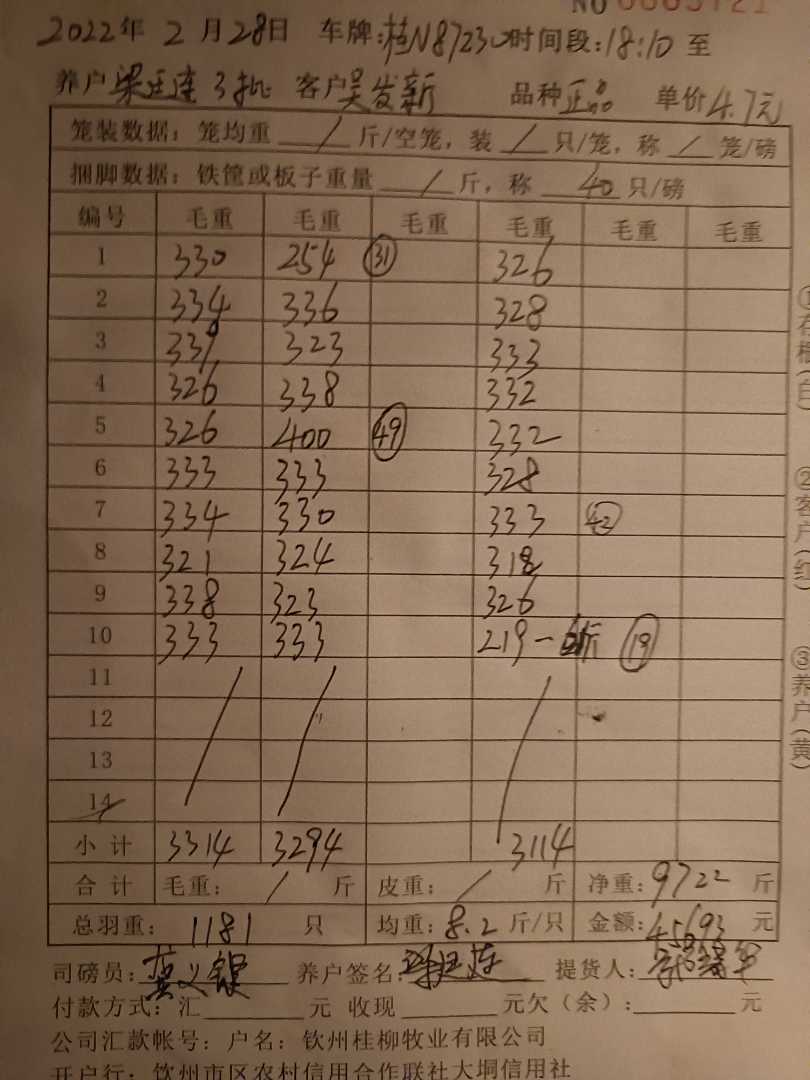 NO
2022年 2月28日 车牌:桂N87230时间段:18:10至
养户 梁廷连 3批 客户吴发新 品种 正品 单价4.7元
笼装数据: 笼均重 / 斤/空笼, 装 / 只/笼, 称 / 笼/磅
捆脚数据: 铁筐或板子重量 / 斤, 称 40 只/磅
编号 毛重 毛重 毛重 毛重 毛重 毛重
1 330 254 ㉛ 326
2 334 336 328
3 339 323 333
4 326 338 332
5 326 400 ㊾ 332
6 333 333 328
7 334 330 333 ㊷
8 321 324 318
9 338 323 326
10 333 333 219-61斤 ⑲
11
12
13
14
小计 3314 3294 3114
合计 毛重: / 斤 皮重: / 斤 净重: 9722 斤
总羽重: 1181 只 均重: 8.2 斤/只 金额: 45693 元
司磅员: 养户签名: 梁廷连 提货人:
付款方式: 汇 元 收现 元欠(余): 元
公司汇款帐号: 户名: 钦州桂柳牧业有限公司
开户行: 钦州市区农村信用合作联社大垌信用社
①存根(白)
②客户(红)
③养户(黄)